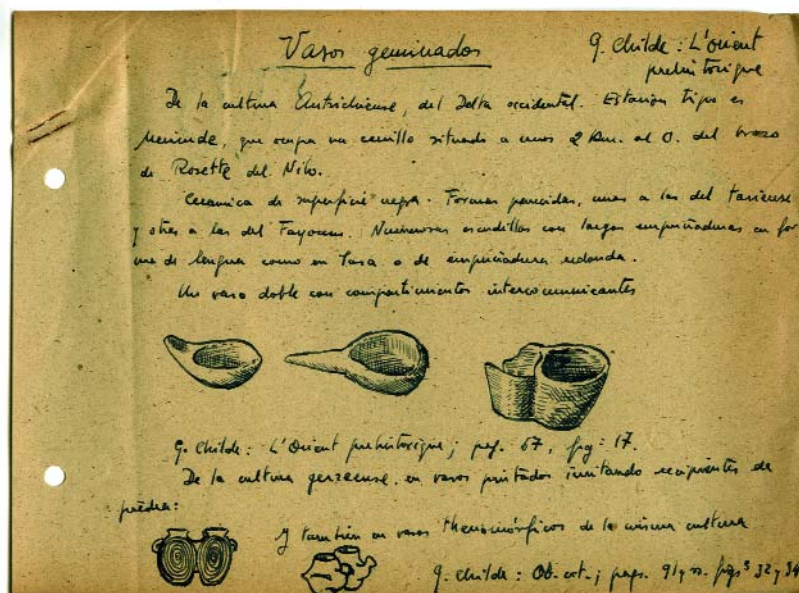 Vasos geminados
G. Childe: L'orient
prehistorique
De la cultura , del Delta occidental. Estación tipo es
Merimde, que ocupa un cerrillo situado a unos 2 Km. al O. del brazo
de Rosette del Nilo.
Ceramica de superficie negra. Formas parecidas, unas a las del tasiense
y otras a las del Fayoum. Numerosas escudillas con largas empuñaduras en for
ma de lengua como en Tasa o de empuñadura redonda.
Un vaso doble con compartimientos intercomunicantes
G. Childe: L'Orient prehistorique; pag. 67, fig: 17.
De la cultura gerzeense, en vasos pintados imitando recipientes de
piedra:
Y también en vasos theriomórficos de la misma cultura
G. Childe: Ob. cit.; pags. 91 y ss. figs 32 y 34